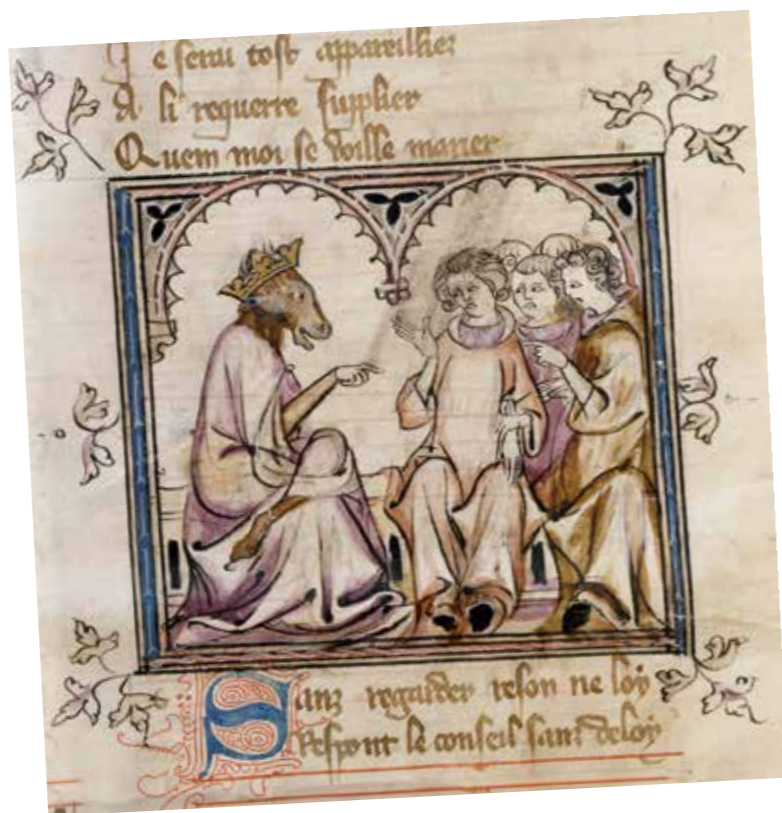 J e serui tost appareillier
A li requerre supplier
Quem moi se voille marier
Sanz regarder reson ne loy
Respont le conseil sanz deloy